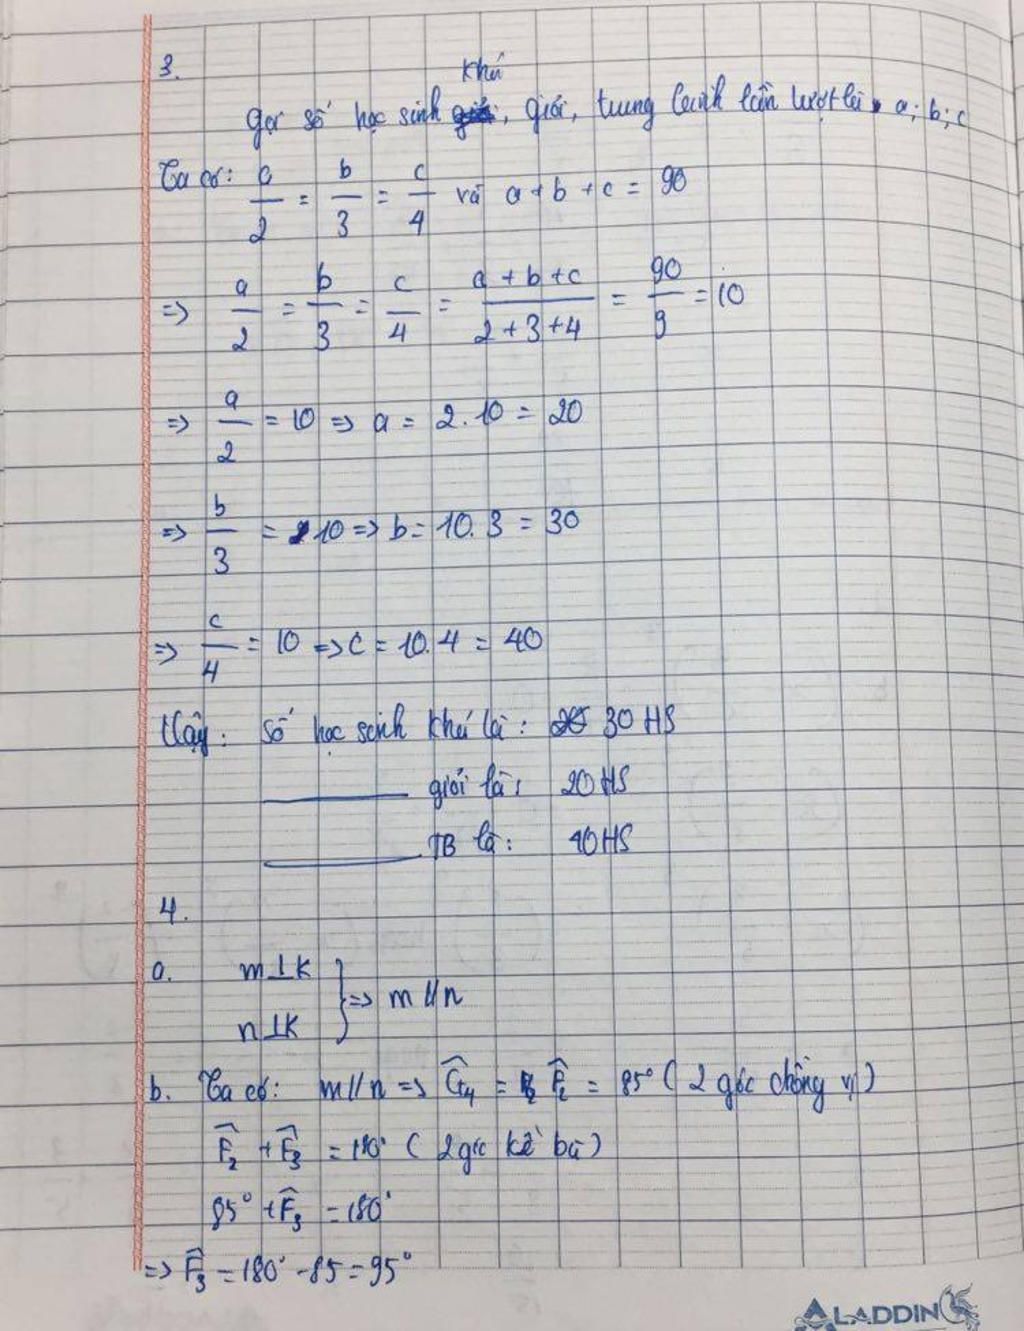 3.
khá
gọi số học sinh giỏi, giỏi, trung bình lần lượt là a; b; c
Ta có: a/2 = b/3 = c/4 và a + b + c = 90
=> a/2 = b/3 = c/4 = (a + b + c)/(2 + 3 + 4) = 90/9 = 10
=> a/2 = 10 => a = 2.10 = 20
=> b/3 = 10 => b = 10.3 = 30
=> c/4 = 10 => c = 10.4 = 40
Vậy: số học sinh khá là: 30 HS
giỏi là: 20 HS
TB là: 40 HS
4.
a. m⊥K
n⊥K } => m // n
b. Ta có: m // n => Ĝ₄ = F̂₂ = 85° (2 góc đồng vị)
F̂₂ + F̂₃ = 180° (2 góc kề bù)
85° + F̂₃ = 180°
=> F̂₃ = 180° - 85 = 95°
ALADDIN